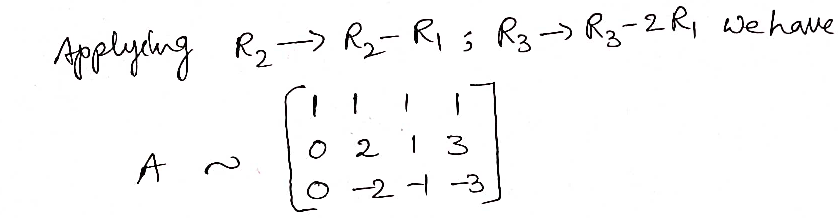 Applyding R₂ → R₂ - R₁ ; R₃ → R₃ - 2R₁ We have
A ~ [1 1 1 1
0 2 1 3
0 -2 -1 -3]